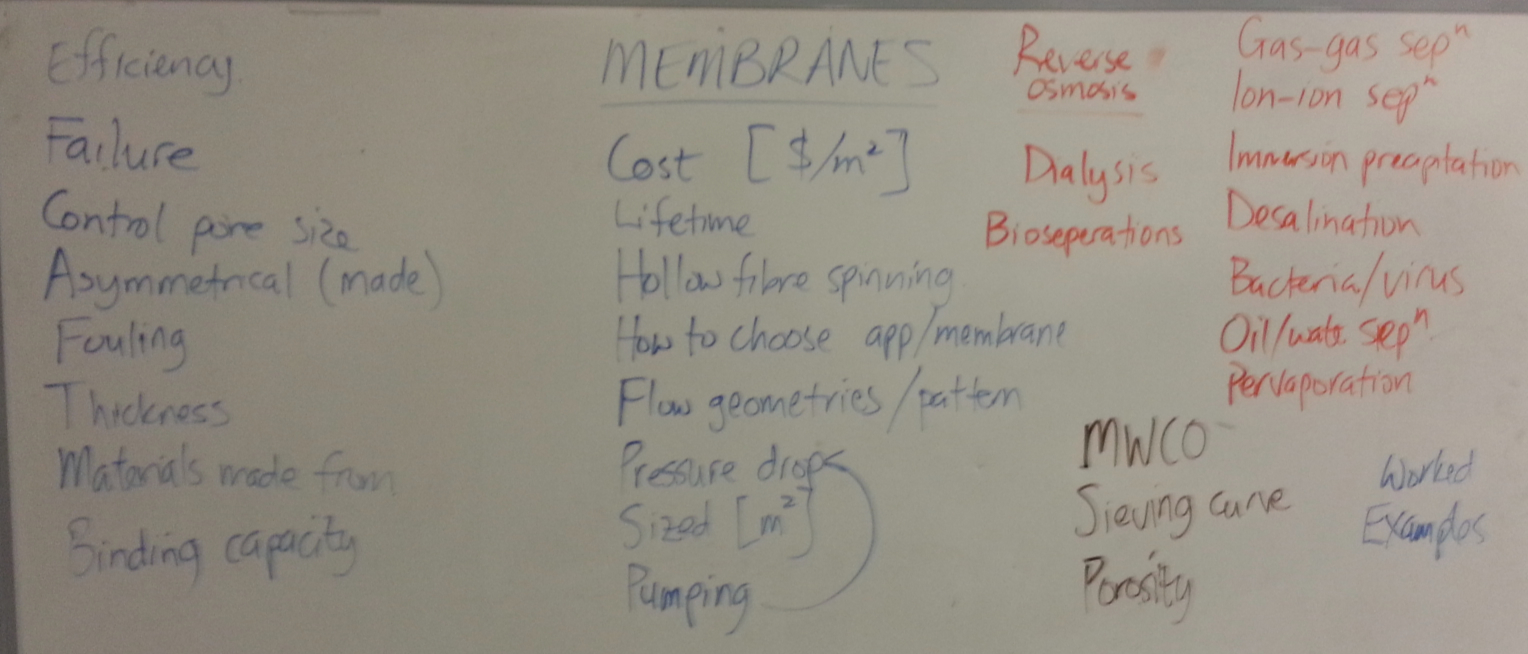 Efficiency
Failure
Control pore size
Asymmetrical (made)
Fouling
Thickness
Materials made from
Binding capacity
MEMBRANES
Cost [$/m²]
Lifetime
Hollow fibre spinning
How to choose app/membrane
Flow geometries/pattern
Pressure drops
Sized [m²]
Pumping
Reverse
osmosis
Dialysis
Bioseperations
Gas-gas sepⁿ
Ion-ion sepⁿ
Immersion precipitation
Desalination
Bacteria/virus
Oil/water sepⁿ
Pervaporation
MWCO
Sieving curve
Porosity
Worked
Examples